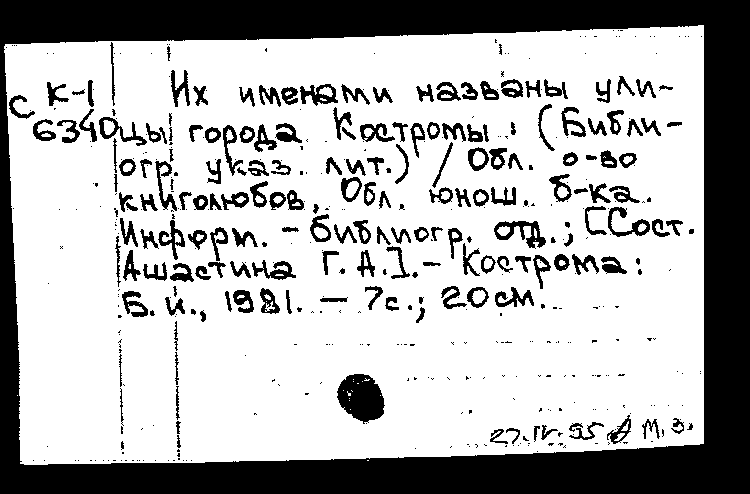 С К-1 Их именами названы ули-
6340 цы города Костромы : (Библи-
огр. указ. лит.) / Обл. о-во
книголюбов, Обл. юнош. б-ка.
Информ. - библиогр. отд.; [Сост.
Ашастина Г. А.]. - Кострома:
Б. и., 1981. — 7с.; 20см.
27.IV.95 М.З.